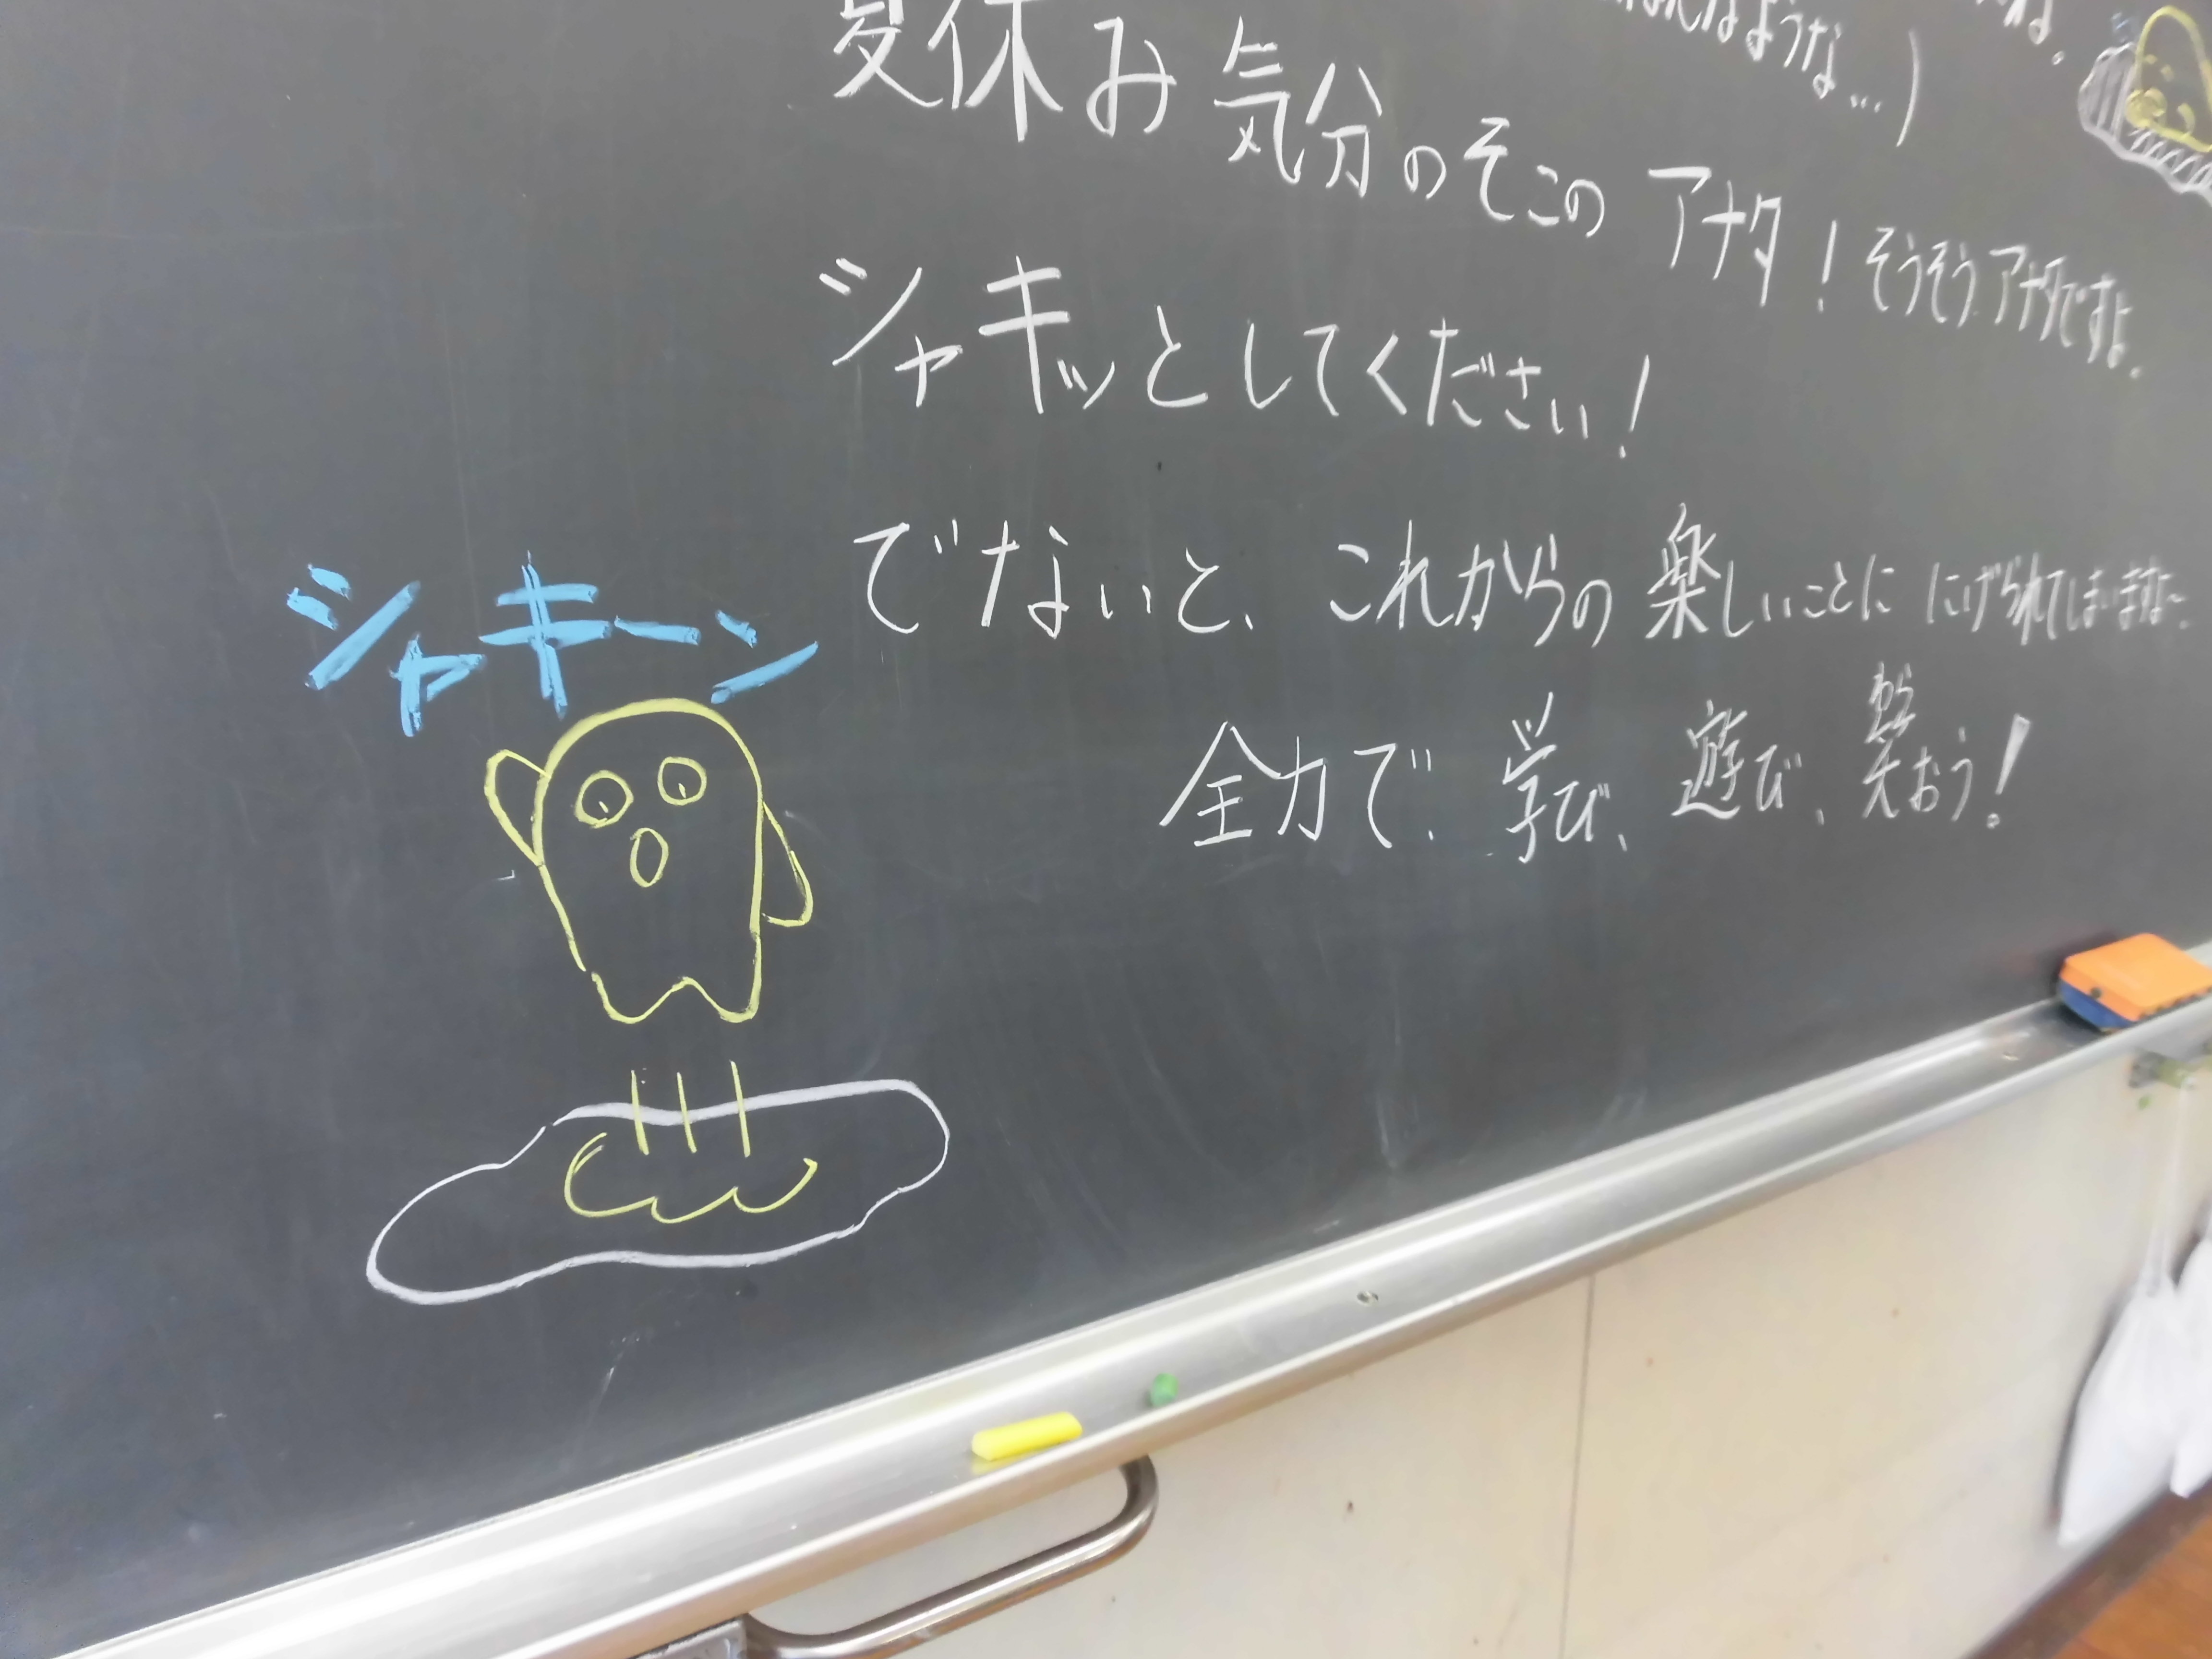 ような…)
夏休み気分のそこのアナタ！そうそうアナタですよ。
シャキッとしてください！
でないと、これからの楽しいことに にげられてしまいますよ〜
全力で、学び、遊び、笑おう！
わら
シャキーン